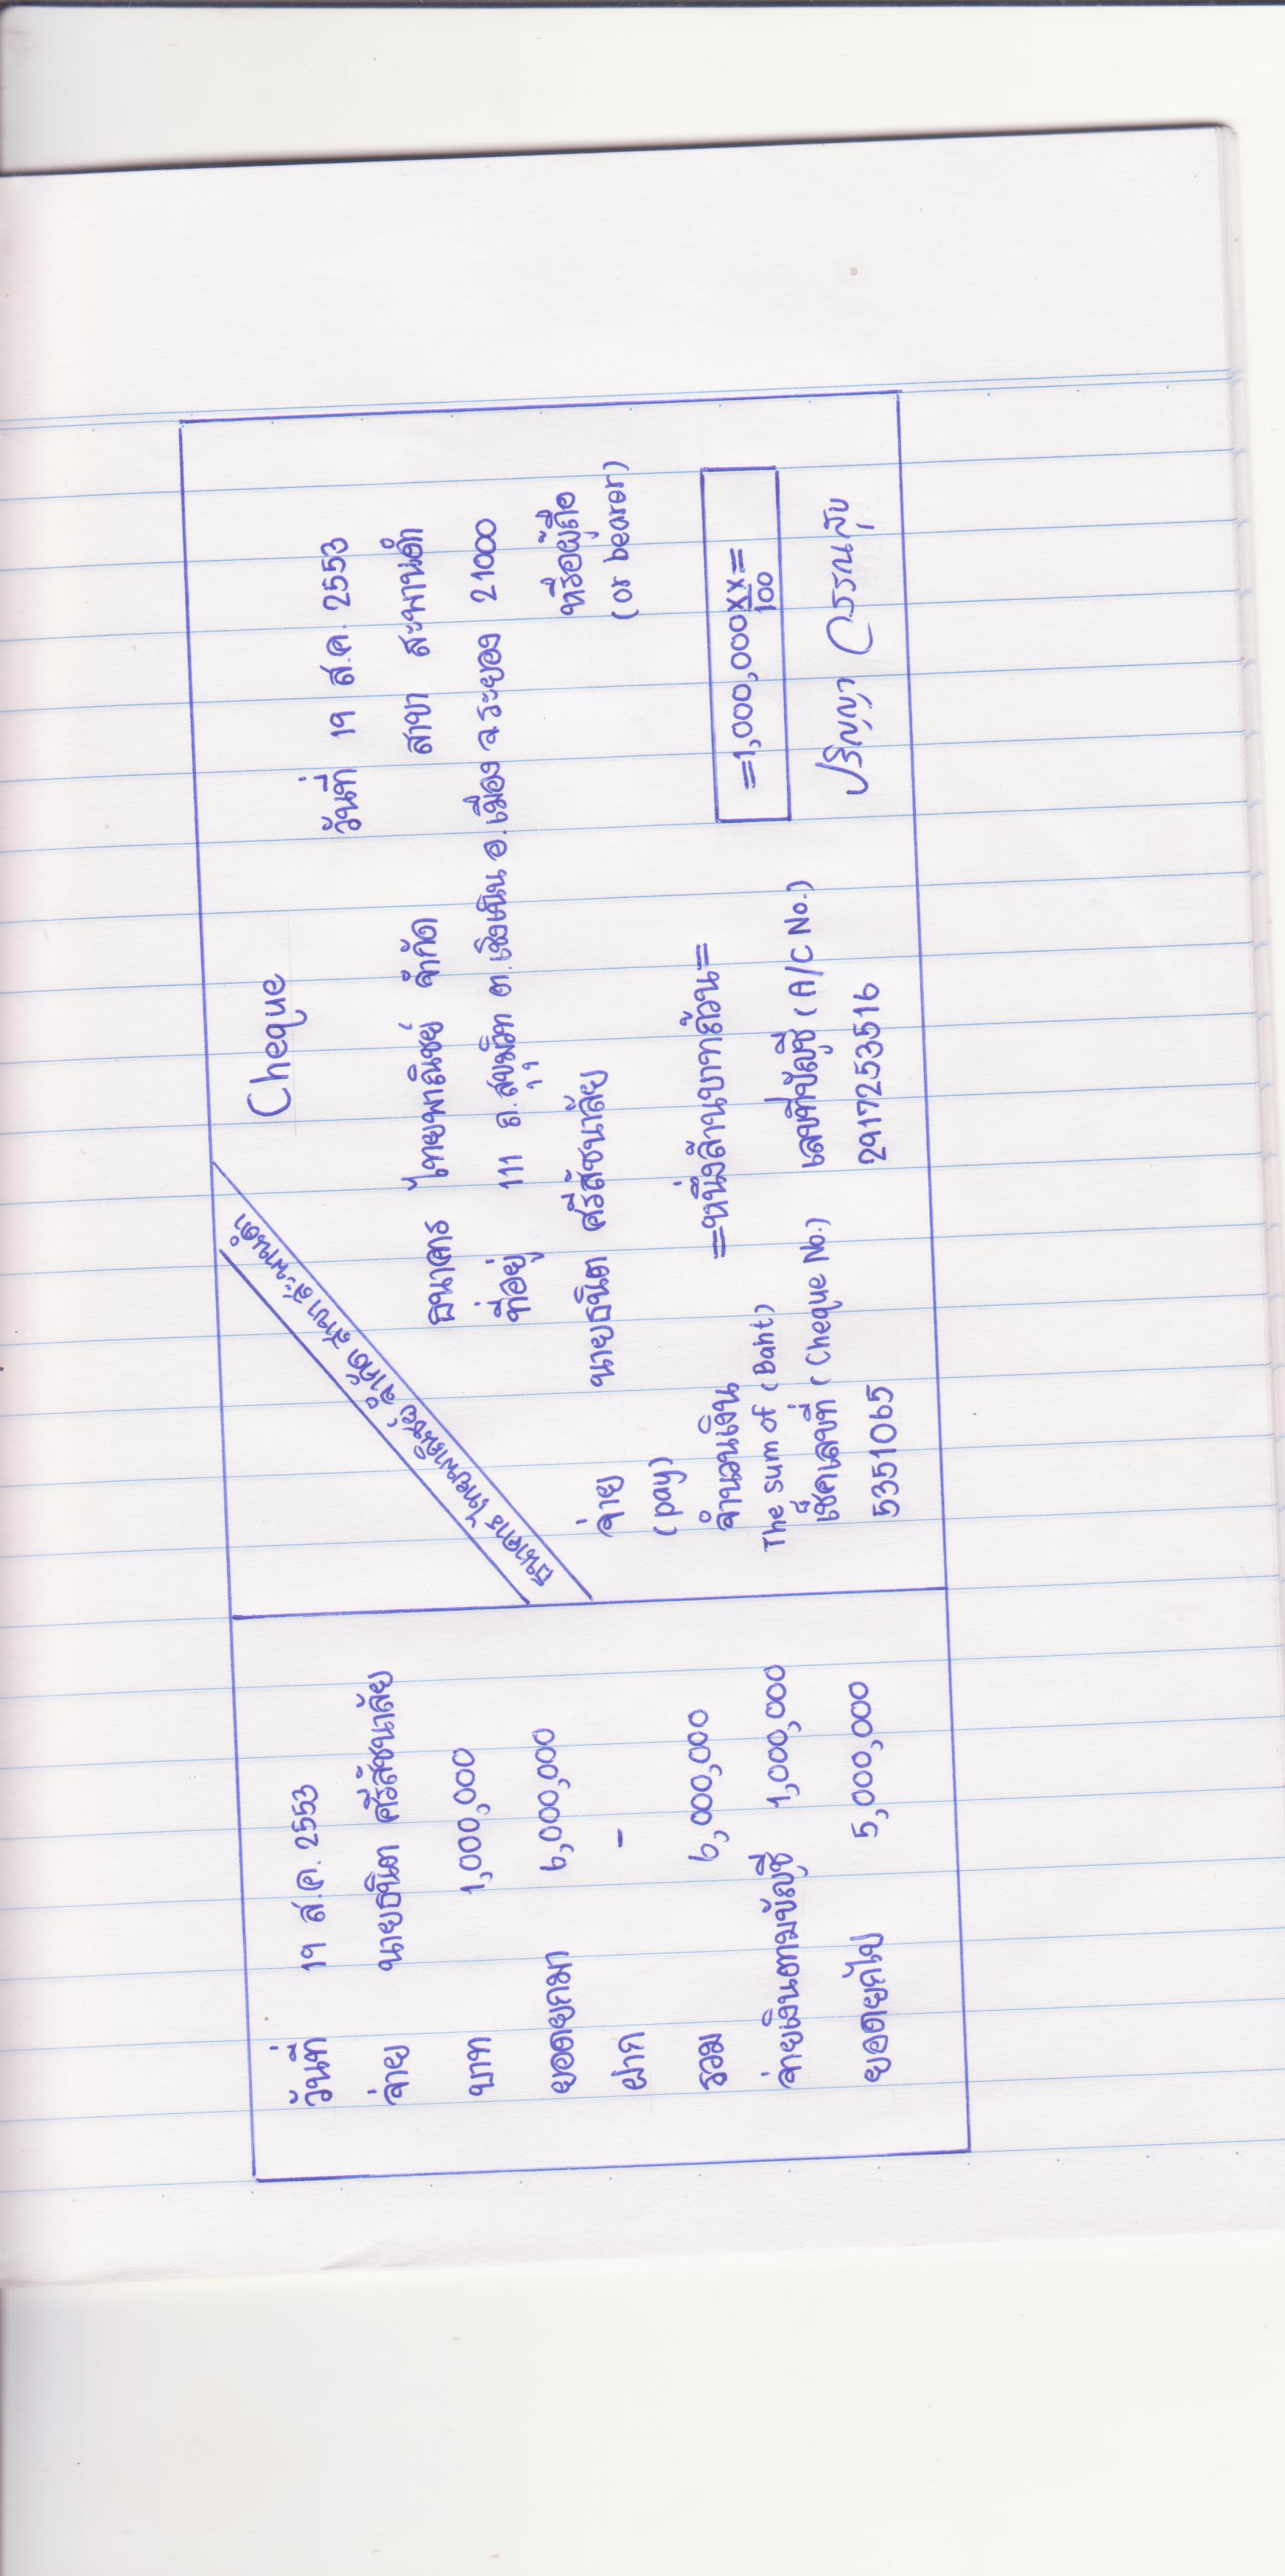 วันที่ 19 ส.ค. 2553
จ่าย นายธนิต ศรีสัชนาลัย
บาท 1,000,000
ยอดยกมา 6,000,000
ฝาก -
รวม 6,000,000
จ่ายเงินตามบัญชี 1,000,000
ยอดยกไป 5,000,000
ธนาคาร ไทยพาณิชย์ จำกัด สาขา สะพานดำ
Cheque
วันที่ 19 ส.ค. 2553
ธนาคาร ไทยพาณิชย์ จำกัด สาขา สะพานดำ
ที่อยู่ 111 ถ.สุขุมวิท ต.เชิงเนิน อ.เมือง จ.ระยอง 21000
จ่าย นายธนิต ศรีสัชนาลัย หรือผู้ถือ
(pay) (or bearer)
จำนวนเงิน =หนึ่งล้านบาทถ้วน= =1,000,000 XX/100=
The sum of (Baht)
เช็คเลขที่ (Cheque No.) เลขที่บัญชี (A/C No.) ปริญญา
5351065 2917253516